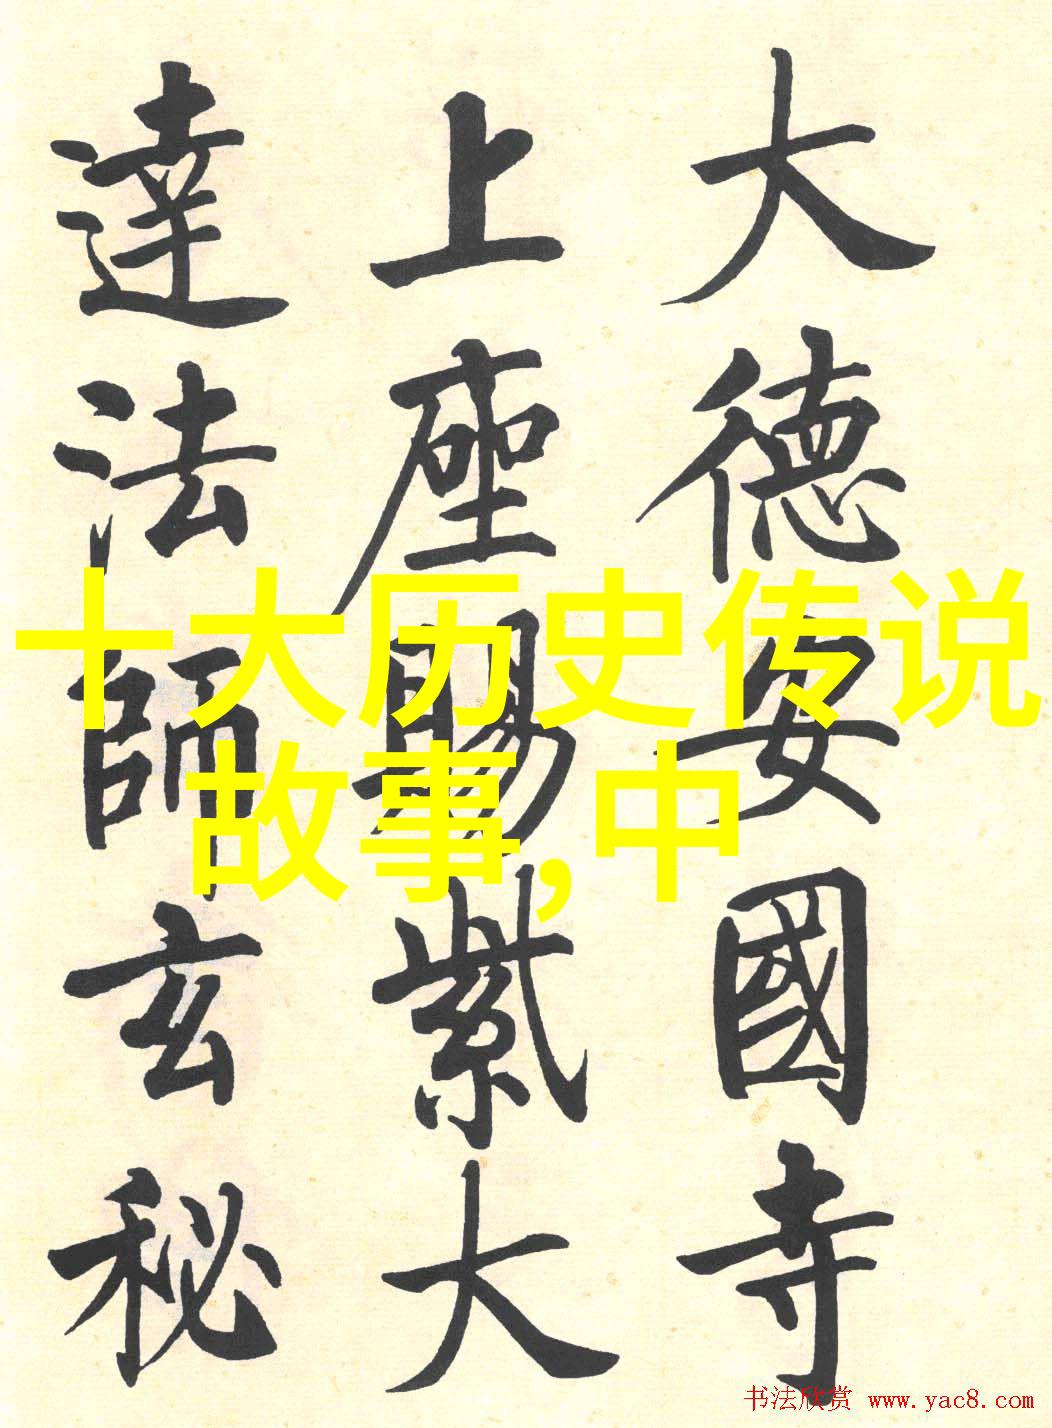 大德安國寺
上座賜紫大
達法師玄秘
十大历史传说
故事,中
书法欣赏 www.yac8.com